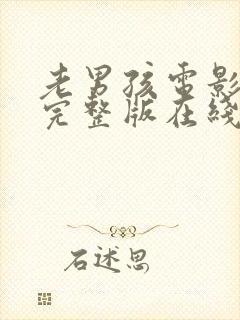 老男孩电影
完整版在线
石述思